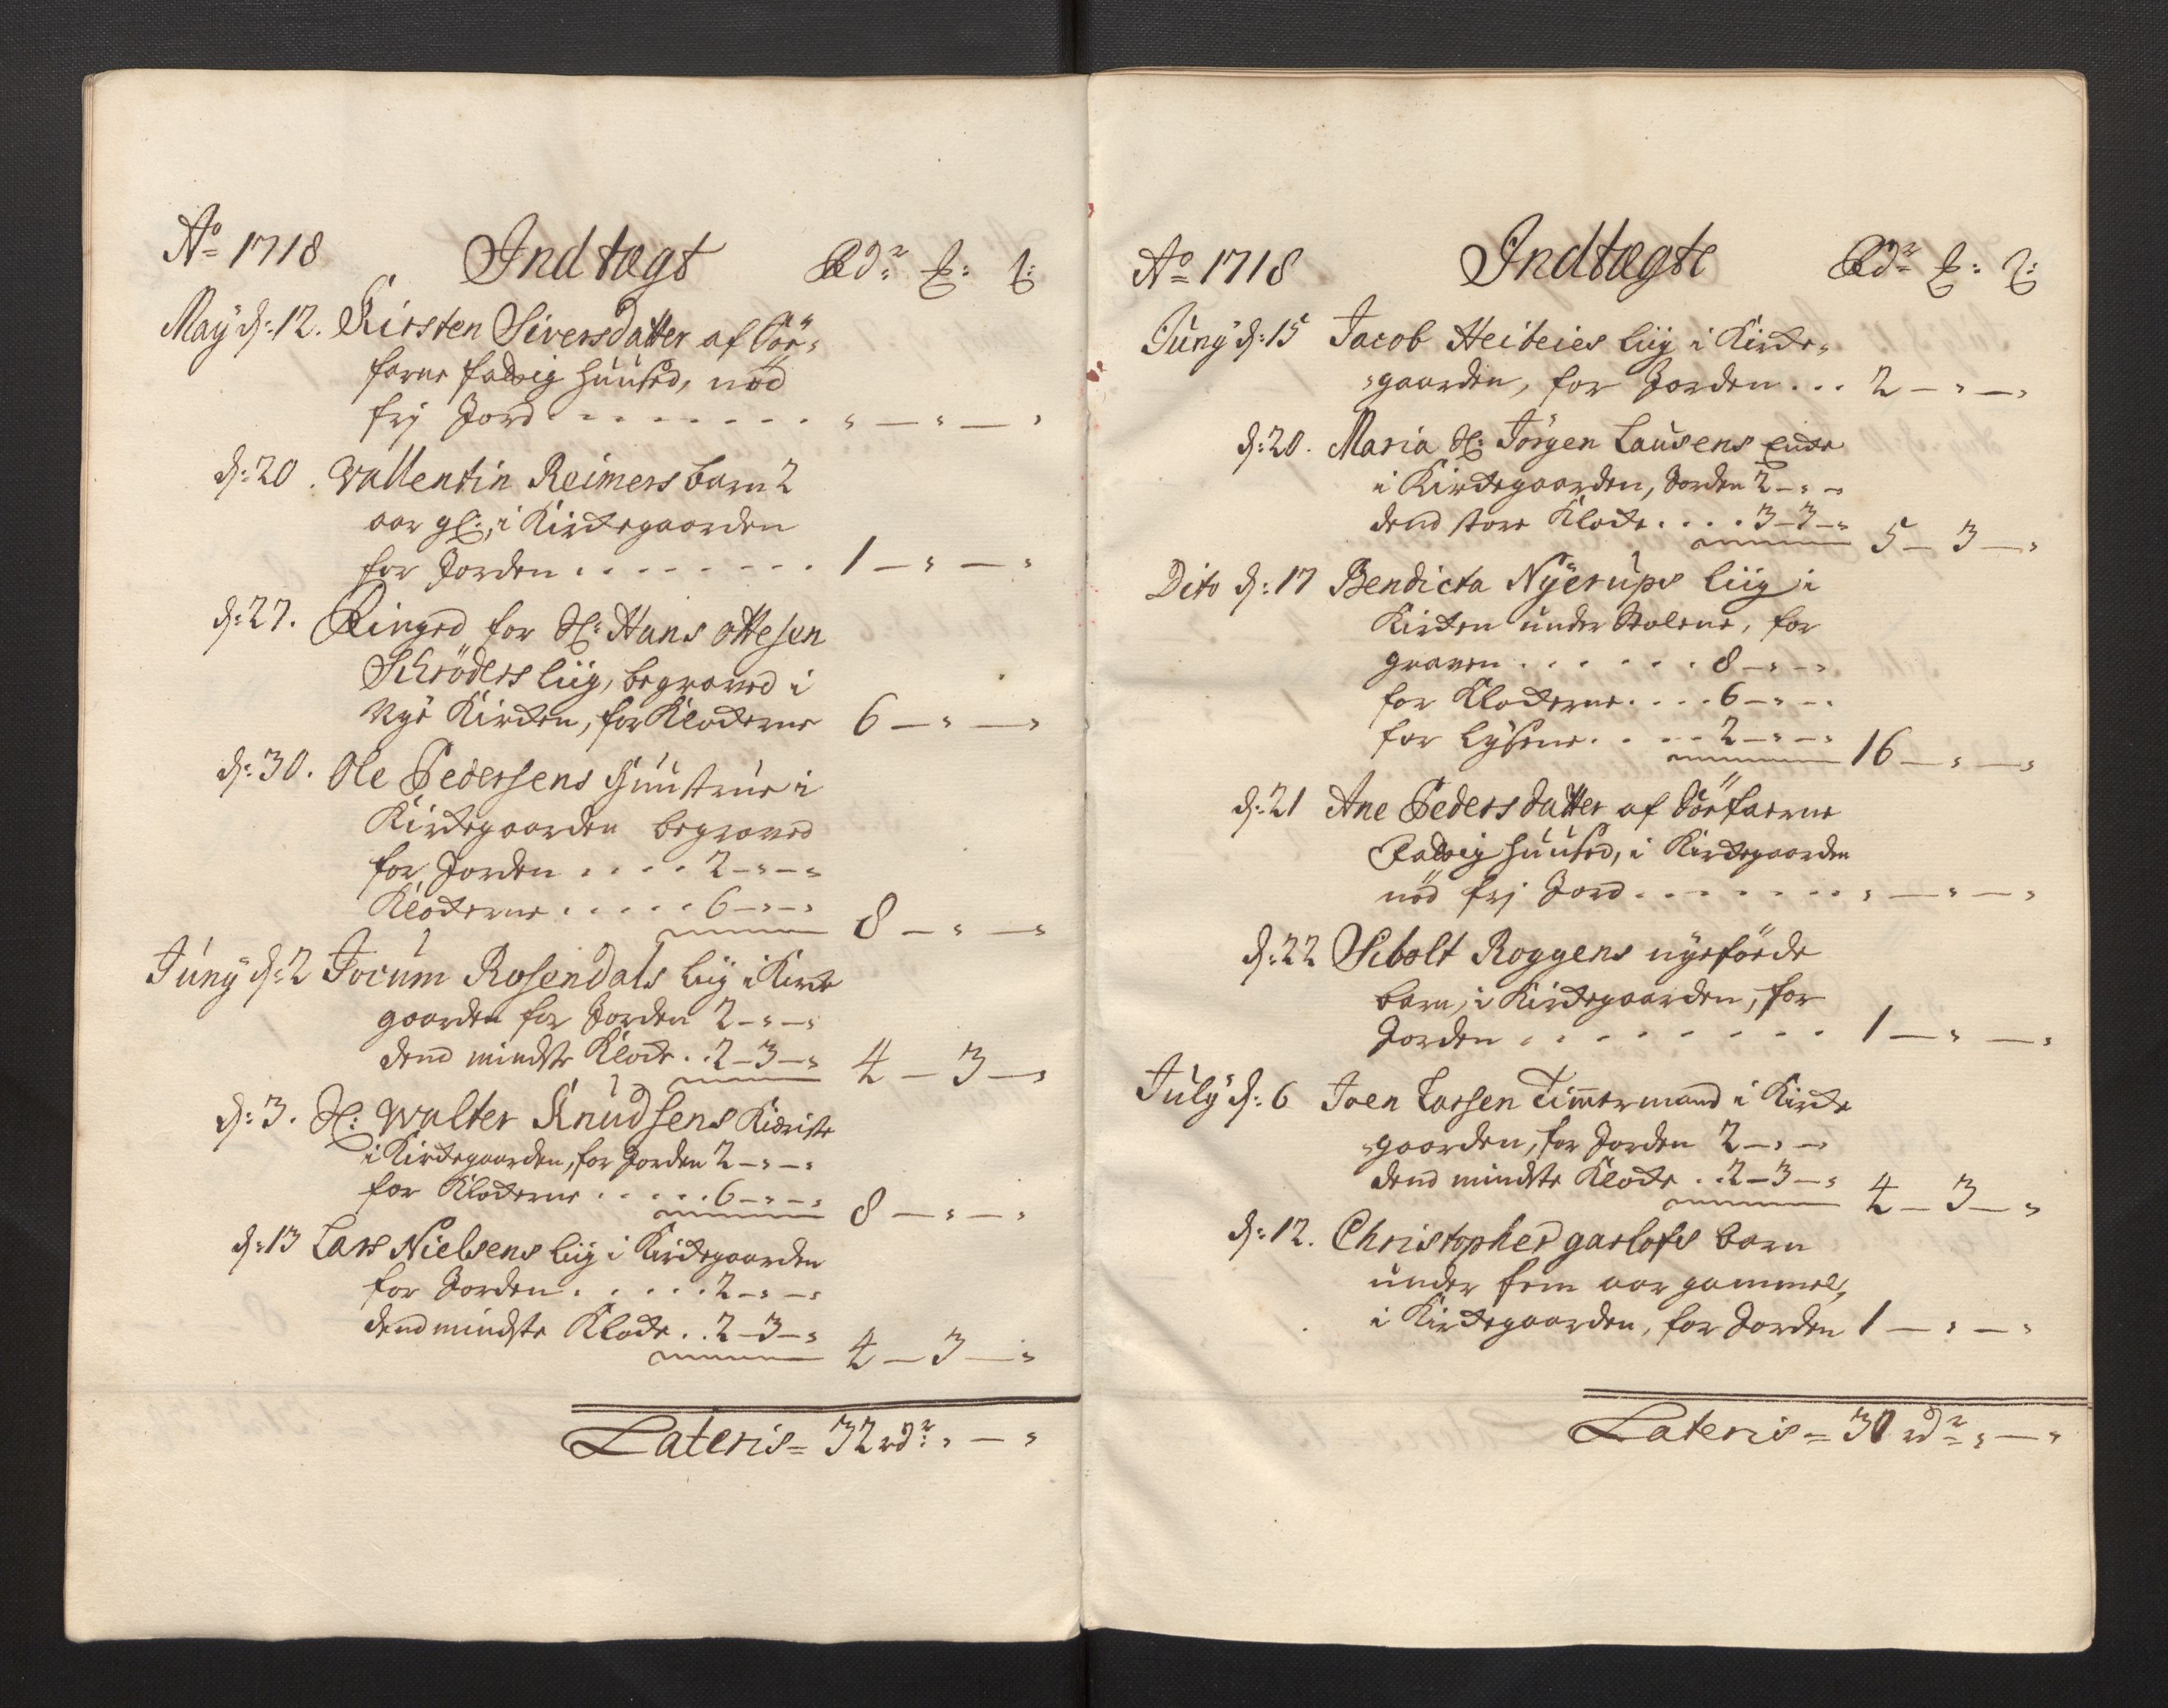 Ao 1718 Indtægt Rdr: ℔: ß:
Maÿ d: 12. Kirsten Siversdatter af Söe-
farne fattig Huused, nöd
frj Jord . . . . . . . . „ — „ — „
d: 20. Vallentin Reimers barn 2
aar gl:, i Kirkegaarden
for Jorden . . . . . . . . 1 — „ — „
d: 27. Ringed for Sl: Hans Ottesen
Schröders liig, begraved i
Nye Kirken, for Klokerne 6 — „ — „
d: 30. Ole Pedersens Huustrue i
Kirkegaarden begraved
for Jorden . . . . 2 — „ — „
Klokerne . . . . . 6 — „ — „ 8 — „ — „
Junÿ d: 2 Jocum Rosendals liig i Kirke
gaarden for Jorden 2 — „ — „
dend mindste Kloke . . 2 — 3 — „ 4 — 3 — „
d: 3. Sl: Walter Knudsens Kieriste
i Kirkegaarden, for Jorden 2 — „ — „
for Klokerne . . . . . 6 — „ — „ 8 — „ — „
d: 13 Lars Nielsens liig i Kirkegaarden
for Jorden . . . . . 2 — „ — „
dend mindste Kloke . . 2 — 3 — „ 4 — 3 — „
Lateris = 32 rdr: „ — „
Ao 1718 Indtægte Rdr: ℔: ß:
Junÿ d: 15 Jacob Heibeies liig i Kirke-
„gaarden, for Jorden . . . 2 — „ — „
d: 20. Maria Sl: Jörgen Lausens Enke
i Kirkegaarden, Jorden 2 — „ — „
dend store Kloke . . . . 3 — 3 — „ 5 — 3 — „
Dito d: 17 Bendicta Nÿerups liig i
Kirken under Stolene, for
graven . . . . . . . 8 — „ — „
for Klokerne . . . . 6 — „ — „
for Lÿsene . . . . . 2 — „ — „ 16 — „ — „
d: 21 Ane Pedersdatter af Söefarne
Fattig Huused, i Kirkegaarden
nöd frj Jord . . . . . . . . „ — „ — „
d: 22 Sibolt Roggens nyeföede
barn, i Kirkegaarden, for
Jorden . . . . . . . . . 1 — „ — „
Julÿ d: 6 Joen Larsen Timmermand i Kirke
„gaarden, for Jorden 2 — „ — „
dend mindste Kloke . . 2 — 3 — „ 4 — 3 — „
d: 12. Christopher garlofs barn
under fem aar gammel,
i Kirkegaarden, for Jorden 1 — „ — „
Lateris = 30 rdr: „ — „